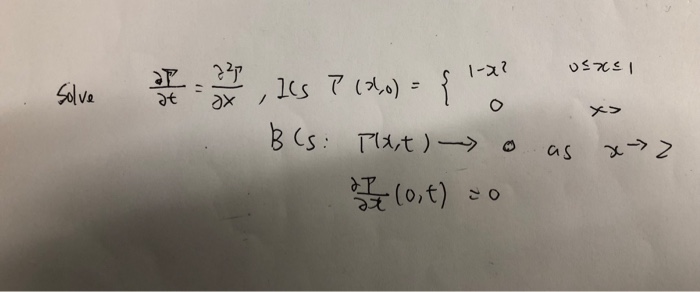 Solve ∂T/∂t = ∂²T/∂x , ICs T(x,0) = { 1-x² 0≤x≤1
0 x>
BCs: T(x,t) → 0 as x→2
∂T/∂x (0,t) = 0